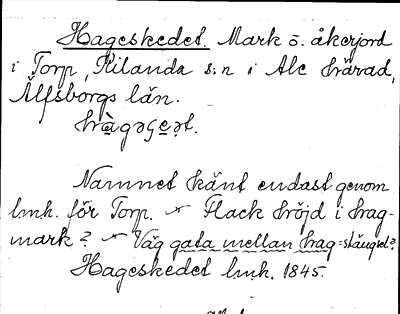 Hageskedet. Mark o. åkerjord
i Torp, Kilanda s:n i Ale härad,
Älfsborgs län.
hàgəʂe̱ət.
Namnet känt endast genom
lmh. för Torp. Flack höjd i hag-
mark? Väg gata mellan hag=stängsel?
Hageskedet lmh. 1845.